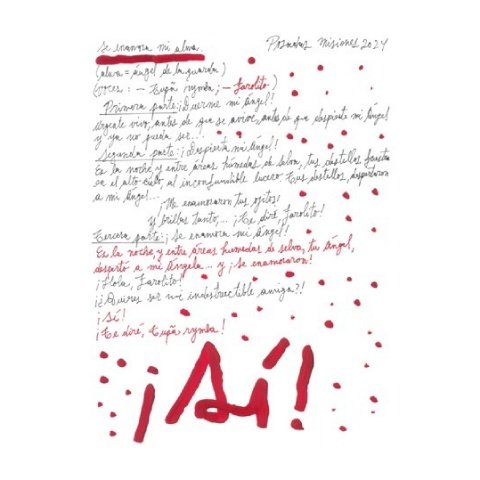 Se enamora mi alma. Posadas Misiones 2024
(alma = ángel de la guarda)
(voces: – Tupã rymba; – Farolito)
Primera parte: ¡Duerme mi ángel!
Urgente vivo, antes de que se avive, antes de que despierte mi Ángel
y ya no pueda ser...
Segunda parte: ¡Despierta mi ángel!
Es la noche, y entre áreas húmedas de selva, tus destellos
en el alto cielo, al inconfundible lucero. Tus destellos, despertaron
a mi ángel...
¡Me enamoraron tus ojitos!
Y brillas tanto,... ¡Te diré, Farolito!
Tercera parte: ¡Se enamora mi ángel!
Es la noche, y entre áreas húmedas de selva, tu Ángel,
despertó a mi Ángela... y ¡Se enamoraron!
¡Hola, Farolito!
¡¿Quieres ser mi indestructible amiga?!
¡Sí!
¡Te diré, Tupã rymba!
¡Sí!